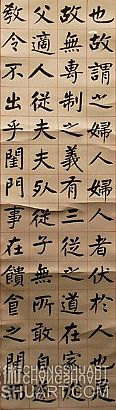 也故謂之婦人婦人者伏於人也是
故無專制之義有三從之道在家從
父適人從夫夫死從子無所敢自遂
教令不出乎閨門事在饋食之間
SHUART.COM